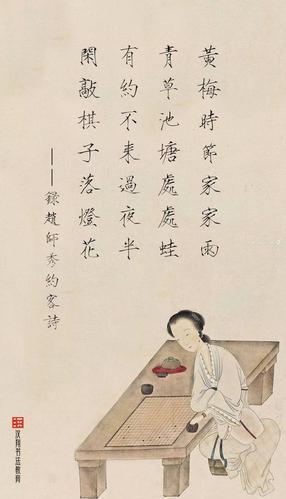 黃梅時節家家雨
青草池塘處處蛙
有約不來過夜半
閑敲棋子落燈花
——錄趙師秀約客詩
汉翔书法教育